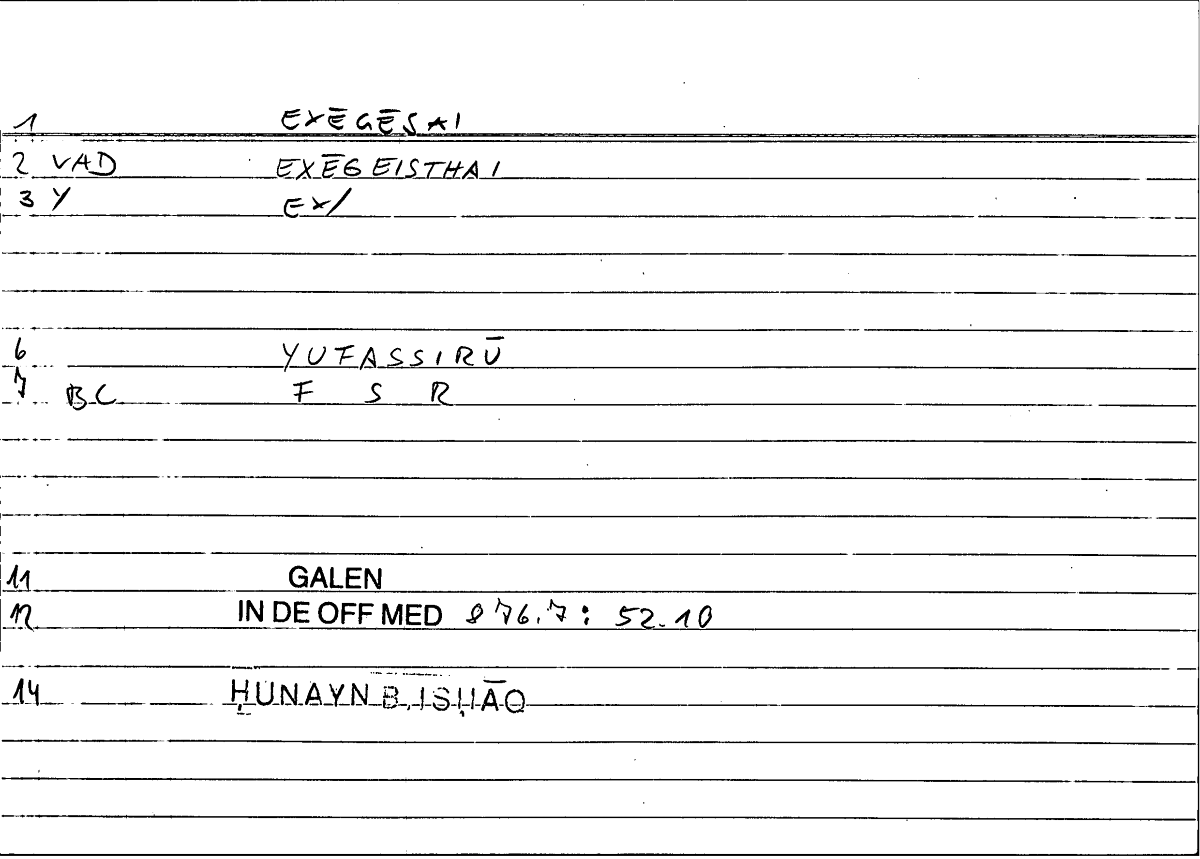 1 EXĒGĒSAI
2 VAD EXĒGEISTHAI
3 Y EX/
6 YUFASSIRŪ
7 BC F S R
11 GALEN
12 IN DE OFF MED 876.7: 52.10
14 ḤUNAYN B. ISḤĀQ